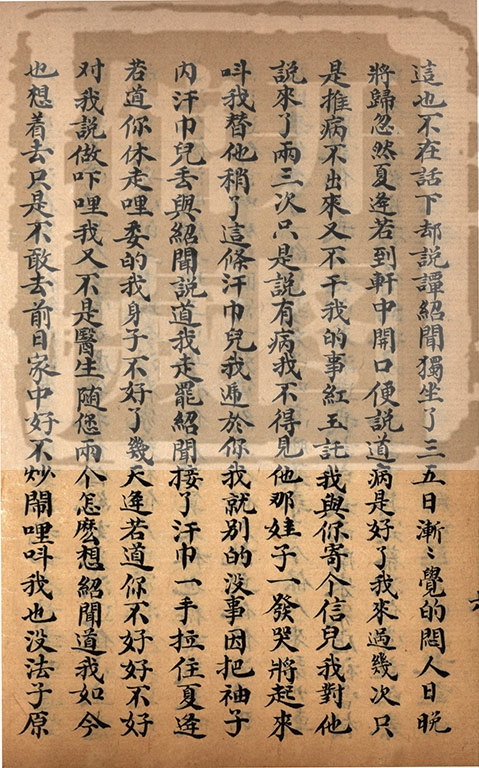 這也不在話下却說譚紹聞獨坐了三五日漸〻覺的悶人日晚
將歸忽然夏逄若到軒中開口便說道病是好了我來過幾次只
是推病不出來又不干我的事紅玉託我與你寄个信兒我對他
說來了兩三次只是說有病我不得見他那娃子一發哭將起來
呌我替他稍了這條汗巾兒我逓於你我就别的没事因把袖子
內汗巾兒丢與紹聞說道我走罷紹聞接了汗巾一手拉住夏逄
若道你休走哩委的我身子不好了幾天逄若道你不好好不好
对我說做吓哩我又不是醫生随您兩个怎麽想紹聞道我如今
也想着去只是不敢去前日家中好不炒鬧哩呌我也没法子原